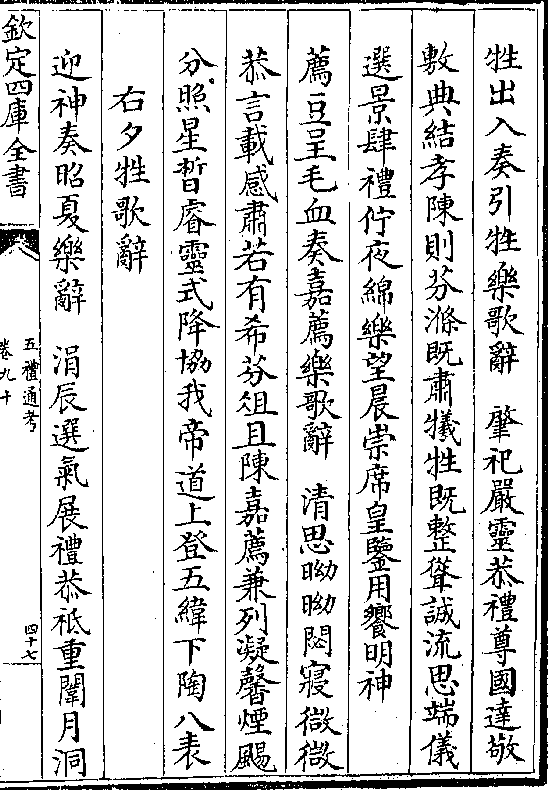 牲出入奏引牲樂歌辭　肇祀嚴靈恭禮尊國達敬
敷典結孝陳則芬滌既肅犧牲既整聳誠流思端儀
選景肆禮佇夜綿樂望晨崇席皇鑒用饗明神
薦豆呈毛血奏嘉薦樂歌辭　清思呦呦閟寢微微
恭言載感肅若有希芬俎且陳嘉薦兼列凝馨煙颺
分照星晢睿靈式降協我帝道上登五緯下陶八表
右夕牲歌辭
迎神奏昭夏樂辭　涓辰選氣展禮恭祗重闈月洞
欽定四庫全書
五禮通考
卷九十
四十七